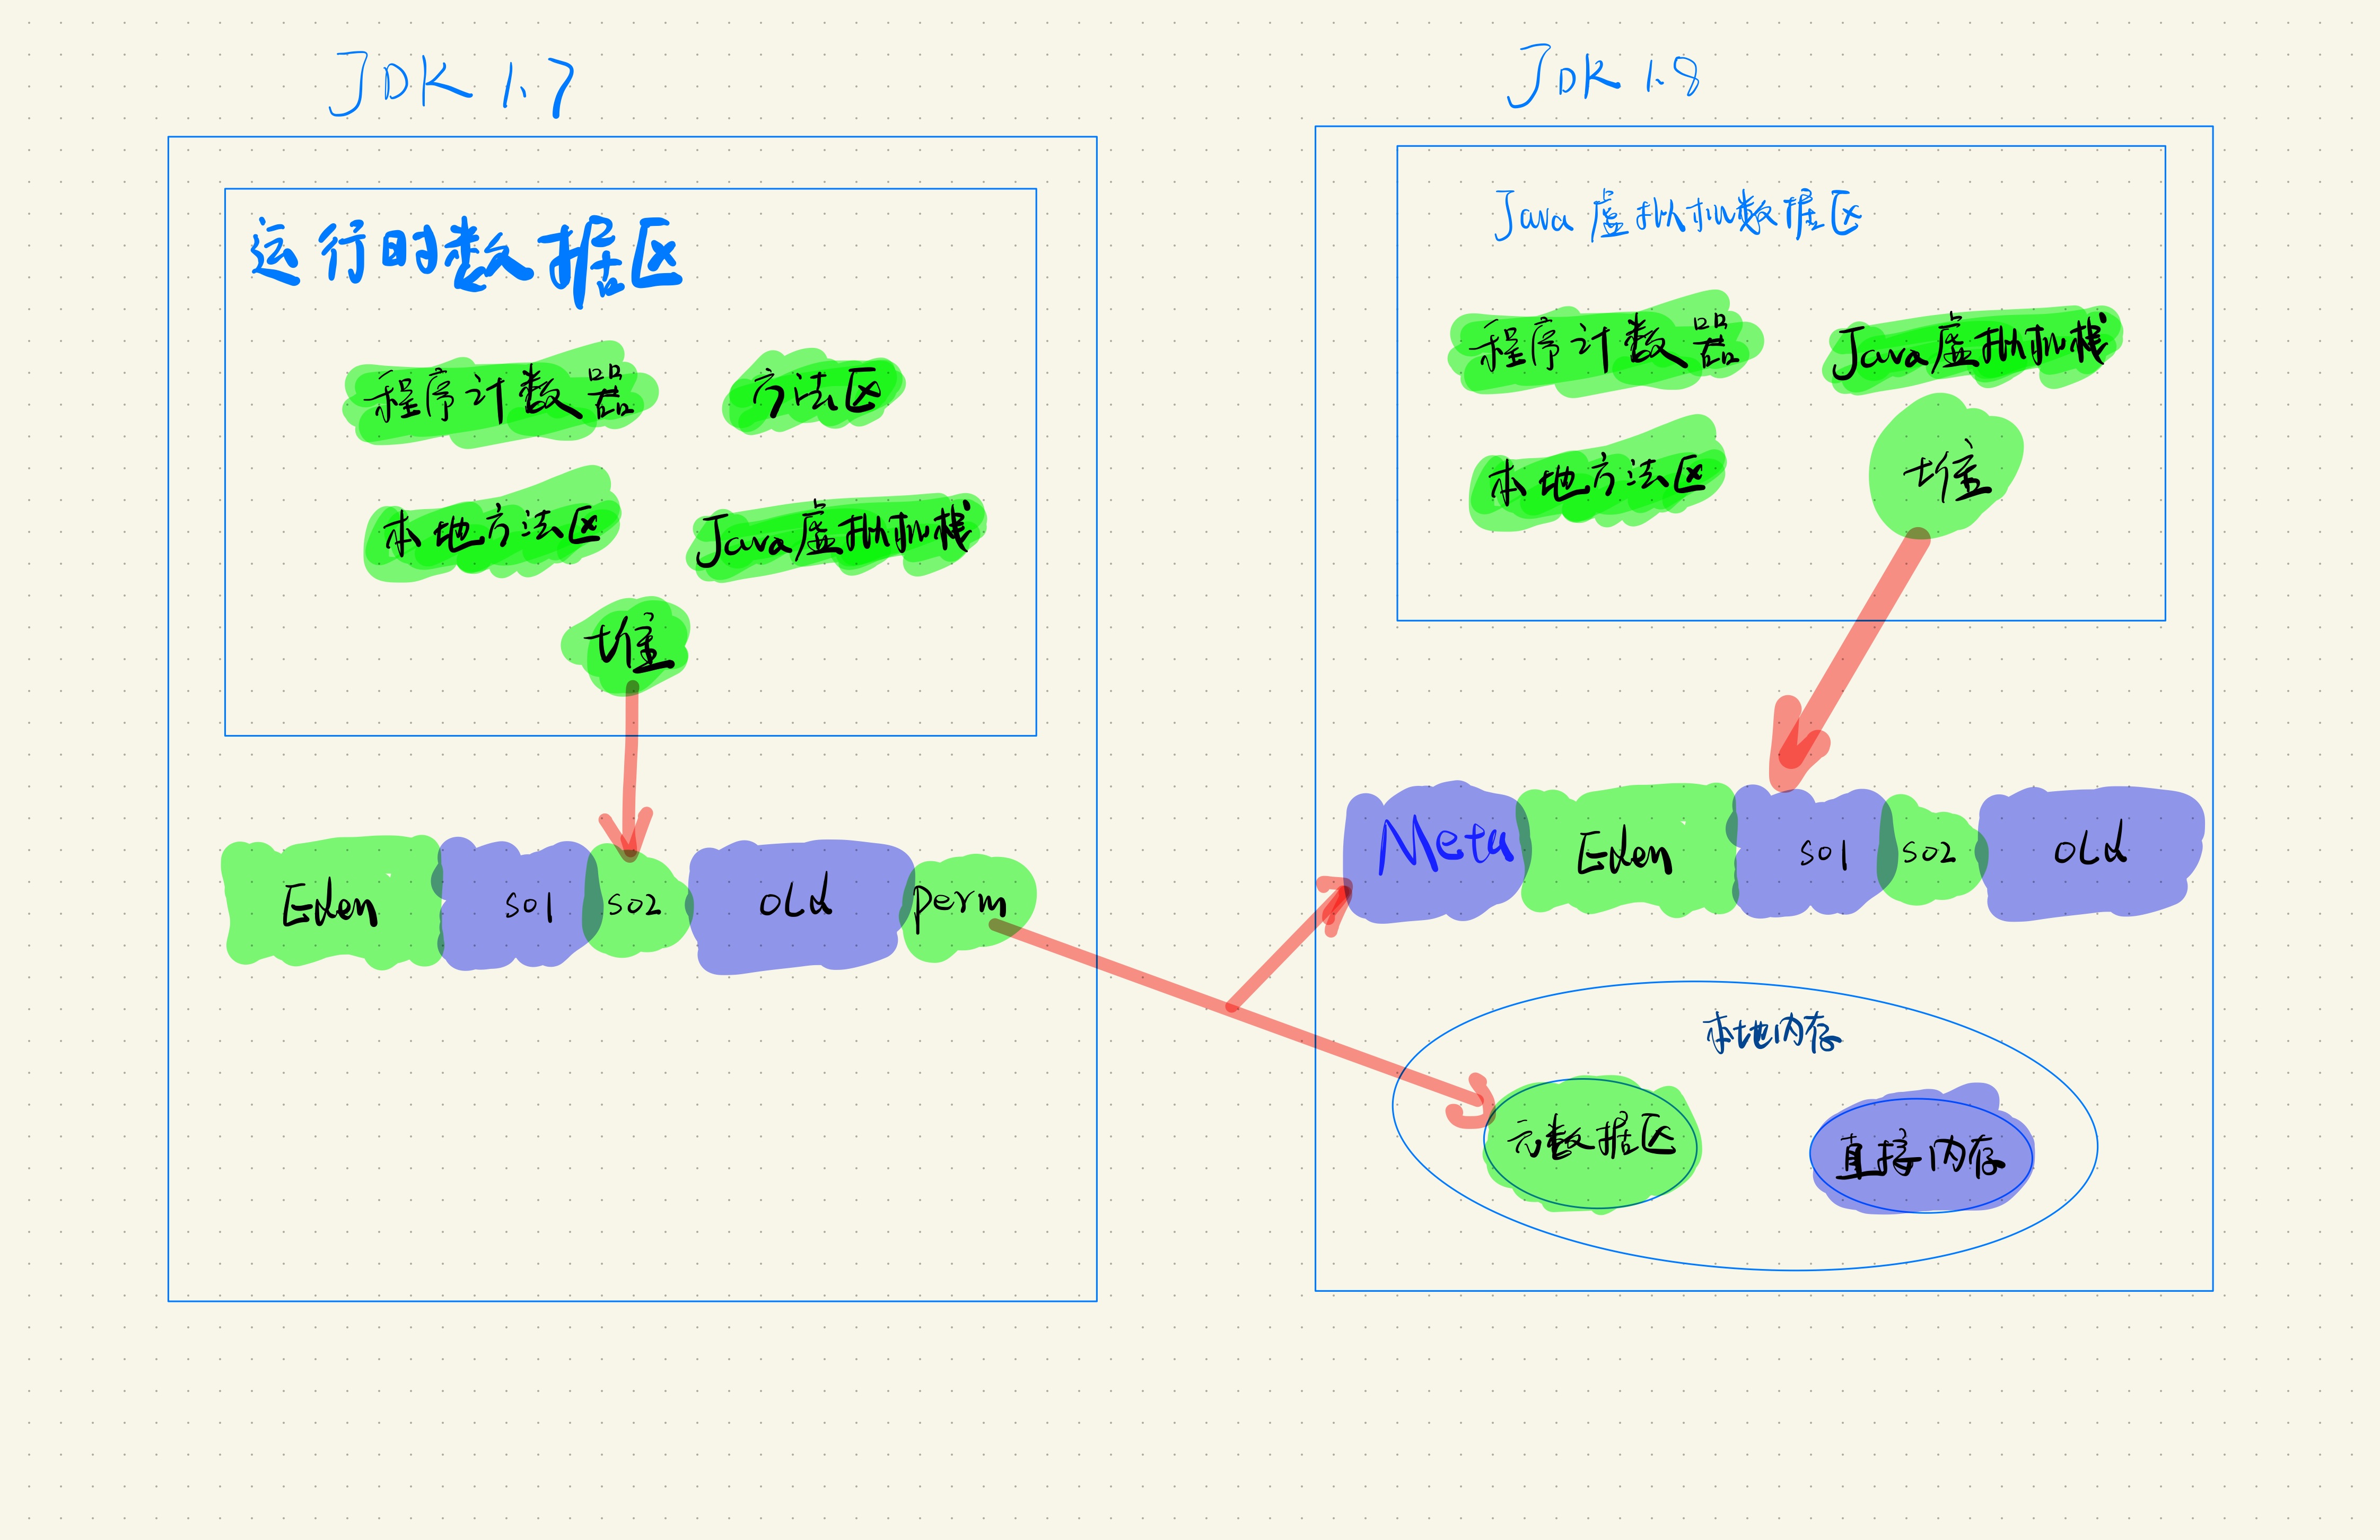 JDK 1.7
运行时数据区
程序计数器 方法区
本地方法区 Java虚拟机栈
堆
Eden so1 so2 old perm
JDK 1.8
Java虚拟机数据区
程序计数器 Java虚拟机栈
本地方法区 堆
Meta Eden so1 so2 old
本地内存
元数据区 直接内存